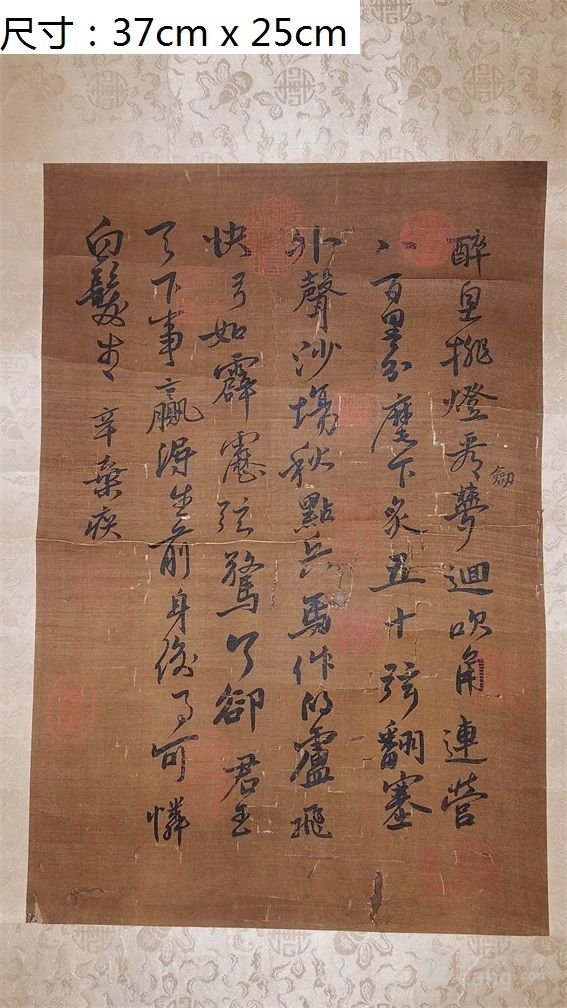 尺寸：37cm x 25cm
醉里挑燈看夢迴吹角連營
劍
八百里分麾下炙五十弦翻塞
外聲沙場秋點兵馬作的盧飛
快弓如霹靂弦驚了卻君王
天下事贏得生前身後名可憐
白髮生 辛棄疾